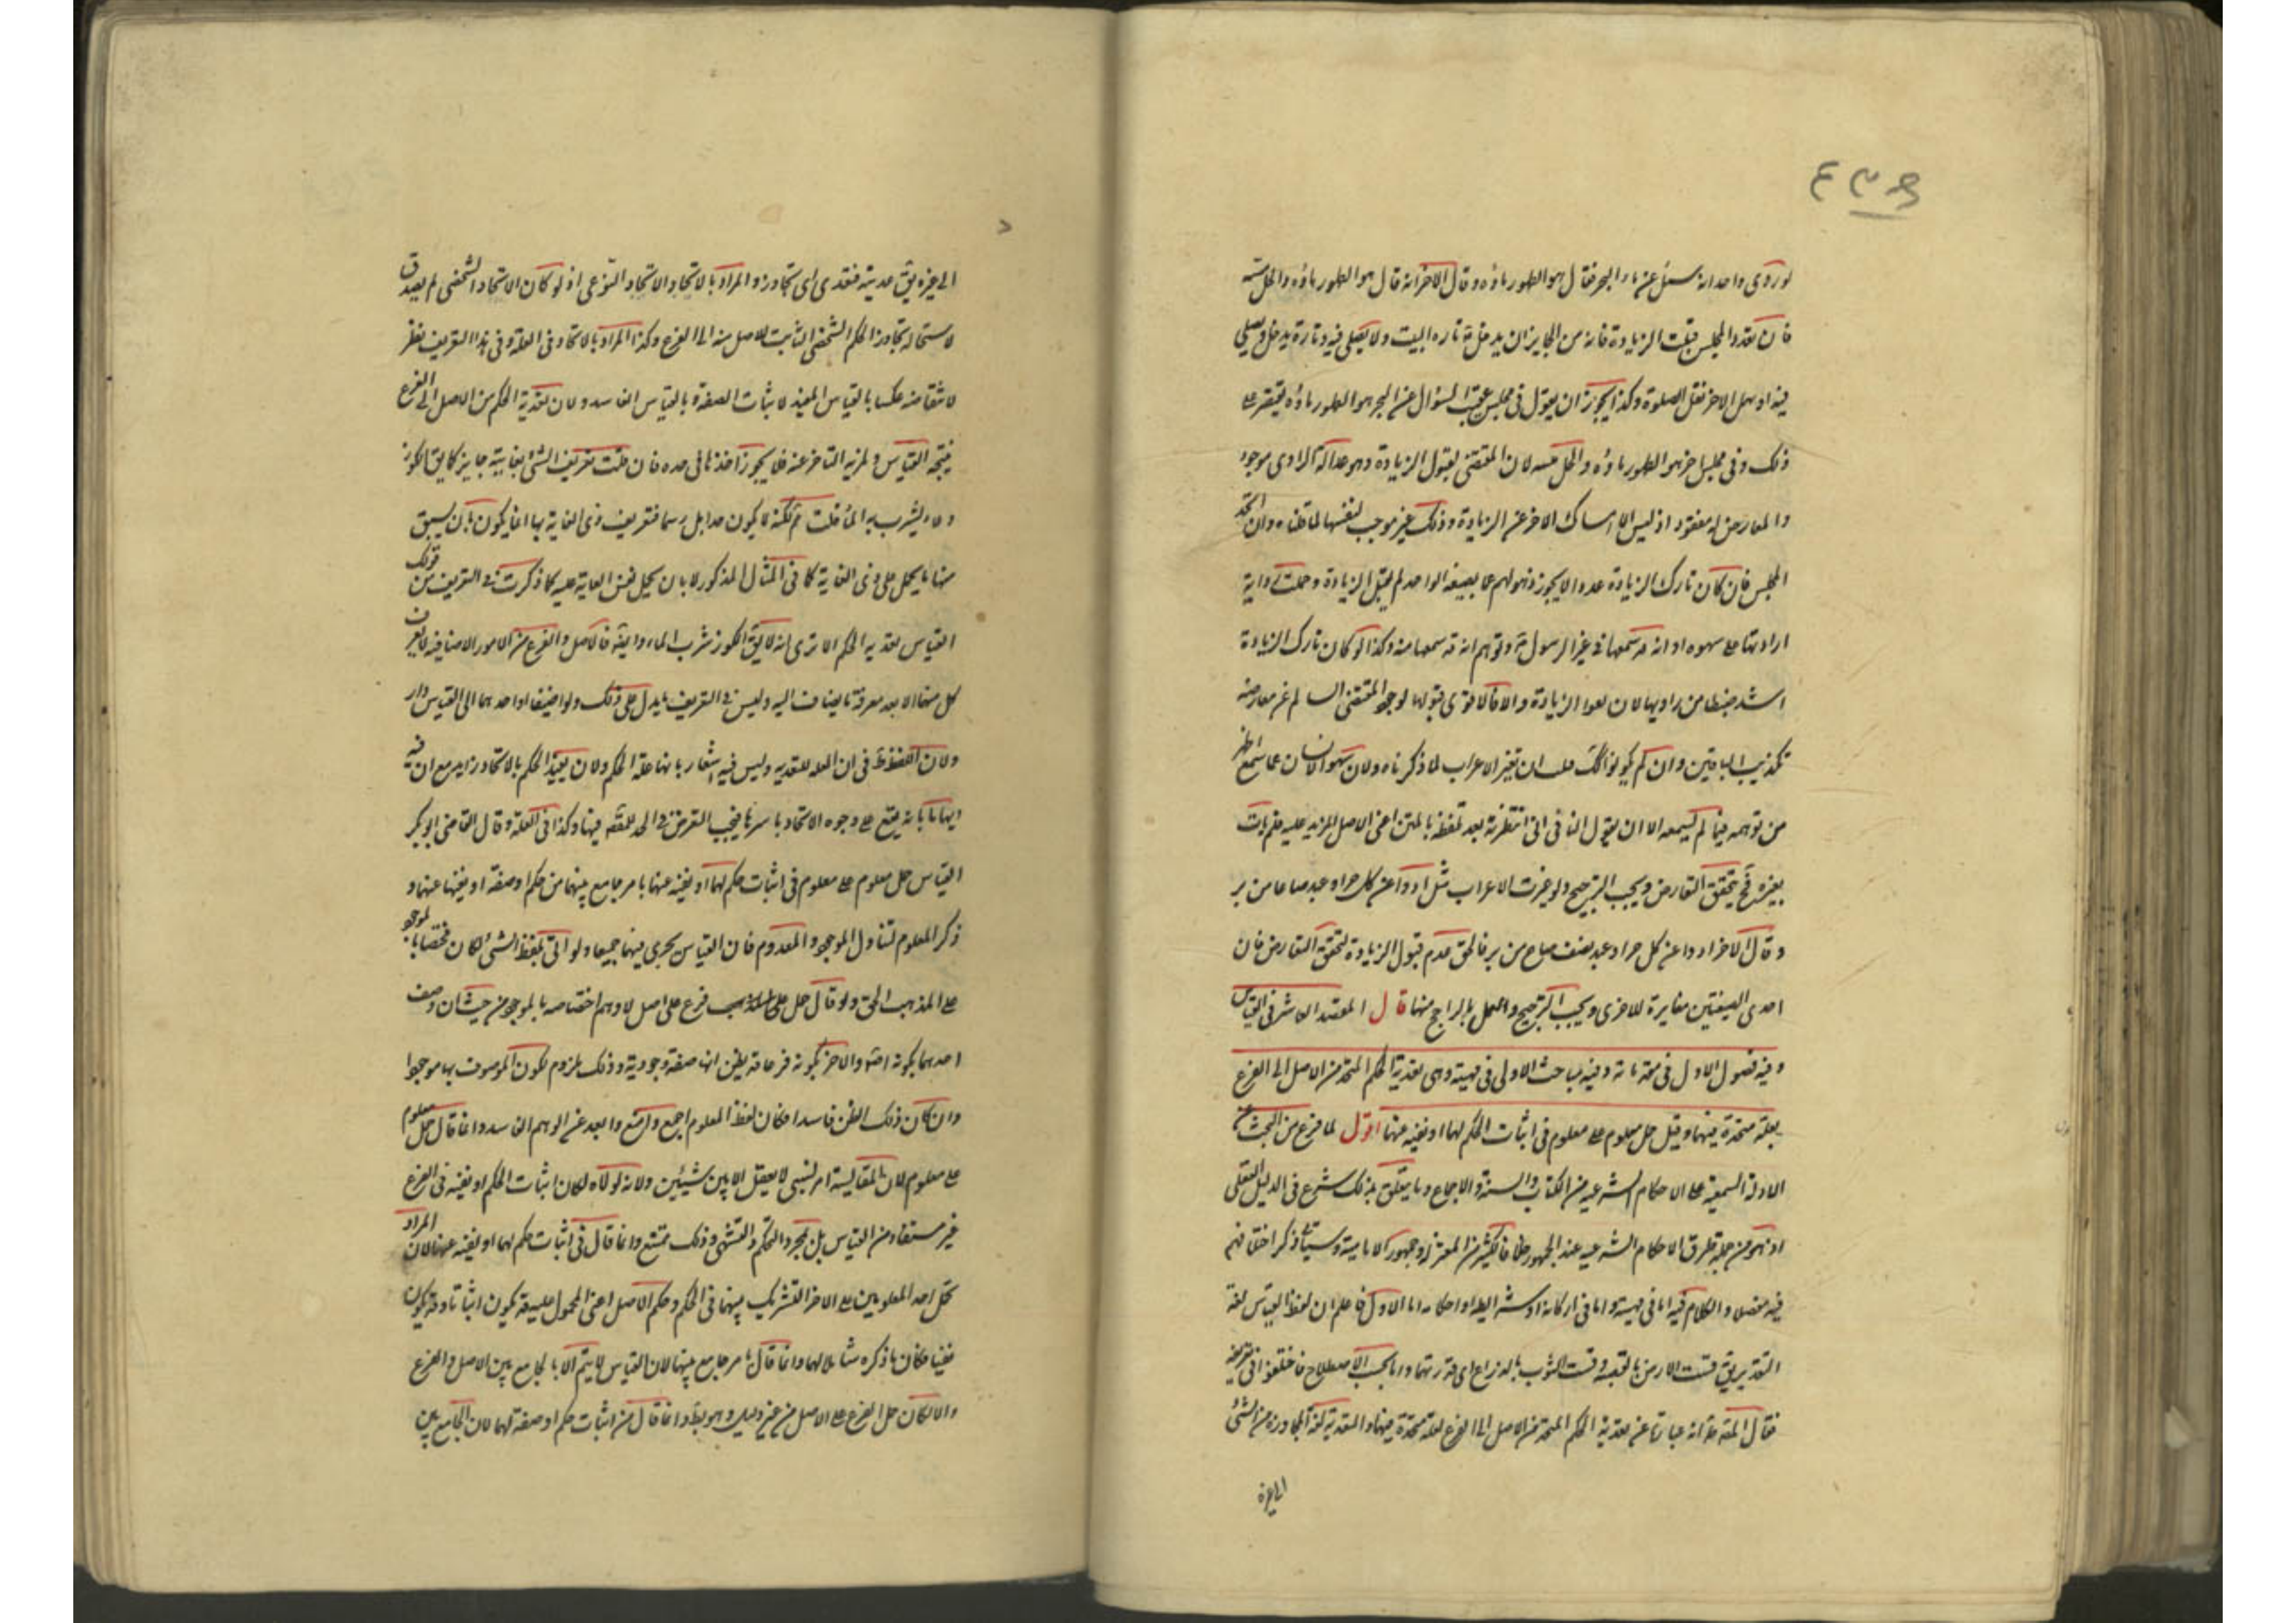 لو روى واحد انه سئل عن ماء البحر فقال هو الطهور ماؤه وقال الاخر انه قال هو الطهور ماؤه والحل ميتته
فان تعدد المجلس قبلت الزيادة فانه من الجايز ان يدخل تارة البيت ولا يصلى فيه وتارة يدخل ويصلي
فيه او يهمل الاخر نقل الصلوة وكذا يجوز ان يقول في مجلس عقيب السؤال عن البحر هو الطهور ماؤه يقتصر على
ذلك وفى مجلس اخر هو الطهور ماؤه والحل ميتته لان المقتضى لقبول الزيادة وهو عدالة الراوى موجود
والمعارض له مفقود اذ ليس الا امساك الاخر عن الزيادة وذلك غير موجب لنفيها لما قلناه وان اتحد
المجلس فان كان تارك الزيادة عددا لا يجوز ذهولهم عما يضبطه الواحد لم يقبل الزيادة وحملت رواية
اراد بها على سهوه او انه قد سمعها من غير الرسول ص وتوهم انه قد سمعها منه وكذا لو كان تارك الزيادة
اشد ضبطا من راويها لان لهذا الزيادة والا فالاقوى قبولها لوجود المقتضى السالم عن معارضة
تكذيب الباقين وان لم يكونوا كك قبلت ان لم تغير الاعراب لما ذكرناه ولان سهو الانسان عما سمع اظهر
من توهمه فيما لم يسمعه الا ان يقول النافى انى انتظرته بعد تلفظه بالمتن اعنى الاصل المزيد عليه فلم يات
بغيره فح يتحقق التعارض ويجب الترجيح ولو غيرت الاعراب مثل ادوا عن كل حر او عبد صاعا من بر
وقال الاخر ادوا عن كل حر او عبد نصف صاع من بر فالحق عدم قبول الزيادة لتحقق التعارض فان
احدى الصيغتين مغايرة للاخرى ويجب الترجيح والعمل بالراجح منها قال المقصد العاشر في القياس
وفيه فصول الاول في مقدماته وفيه مباحث الاولى في مهيته وهى تعدية الحكم المتحد من الاصل الى الفرع
بعلة متحدة فيهما وقيل حمل معلوم على معلوم في اثبات الحكم لهما او نفيه عنهما اقول لما فرغ من البحث عن
الادلة السمعية على الاحكام الشرعية من الكتاب والسنة والاجماع وما يتعلق بذلك شرع في الدليل العقلى
اذ هو من جملة طرق الاحكام الشرعية عند الجمهور خلافا لكثير من المعتزلة وجمهور الامامية وسياتى ذكر اختلافهم
فيه مفصلا والكلام فيه اما في مهيته واما في اركانه او شرائطه او احكامه اما الاول فاعلم ان لفظ القياس لغة
التقدير يق قست الارض بالقصبة وقست الثوب بالذراع اى قدرتهما واما بحسب الاصطلاح فاختلفوا في تعريفه
فقال المصنف انه عبارة عن تعدية الحكم المتحد من الاصل الى الفرع لعلة متحدة فيهما والتعدية لغة المجاوزة من الشئ
الى غيره
الى غيره يق عديته فتعدى اى تجاوز والمراد بالاتحاد الاتحاد النوعى اذ لو كان الاتحاد الشخصى لم يصدق
لاستحالة تجاوز الحكم الشخصى الثابت للاصل منه الى الفرع وكذا المراد بالاتحاد في العلة وفى هذا التعريف نظر
لانتقاضه عكسا بالقياس المفيد لاثبات الصفة بالقياس الفاسد ولان تعدية الحكم من الاصل الى الفرع
نتيجة القياس وثمرته المتاخر عنه فلا يجوز اخذها في حده فان قلت تعريف الشئ بغايته جايز كما يق الكوز
وعاء يشرب به الماء قلت نعم لكنه لا يكون حدا بل رسما فتعريف ذى الغاية بها انما يكون بان يسبق
منها ما يحمل على ذى الغاية كما في المثال المذكور لا بان يحمل نفس الغاية عليه كما ذكرت في التعريف من قولك
القياس تعدية الحكم الا ترى انه لا يق الكوز شرب الماء وايضا فالاصل والفرع من الامور الاضافية لا يعرف
كل منها الا بعد معرفة ما يضاف اليه وليس في التعريف ما يدل على ذلك ولو اضيفا او احدهما الى القياس دار
ولان اللفظ في ان العلة للتعدية وليس فيه اشعار بانها علة الحكم ولان تقييد الحكم بالاتحاد مع ان فيه
القياس حمل معلوم على معلوم في اثبات حكم لهما او نفيه عنهما بامر جامع بينهما من حكم او صفة او نفيهما عنهما و
ذكر المعلوم لتناول الموجود والمعدوم فان القياس يجرى فيهما جميعا ولو اتى بلفظ الشئ لكان مختصا بالموجود
على المذهب الحق ولو قال حمل فرع على اصل لاوهم اختصاصه بالموجود من حيث ان وصف
احدهما بكونه اصلا والاخر بكونه فرعا قد يظن انها صفة وجودية وذلك ملزوم لكون الموصوف بها موجودا
وان كان ذلك الظن فاسدا فكان لفظ المعلوم اجمع وامنع وابعد عن الوهم الفاسد وانما قال حمل معلوم
على معلوم لان المقايسة امر نسبى لا يعقل الا بين شيئين ولانه لولاه لكان اثبات الحكم او نفيه في الفرع
غير مستفاد من القياس بل بمجرد التحكم والتشهى وذلك ممتنع وانما قال في اثبات حكم لهما او نفيه عنهما لان المراد
بحمل احد المعلومين على الاخر التشريك بينهما في الحكم وحكم الاصل اعنى المحمول عليه قد يكون اثباتا وقد يكون
نفيا فكان ما ذكره شاملا لهما وانما قال بامر جامع بينهما لان القياس لا يتم الا بالجامع بين الاصل والفرع
والا لكان حمل الفرع على الاصل من غير دليل وهو بط وانما قال من اثبات حكم او صفة لهما لان الجامع بين